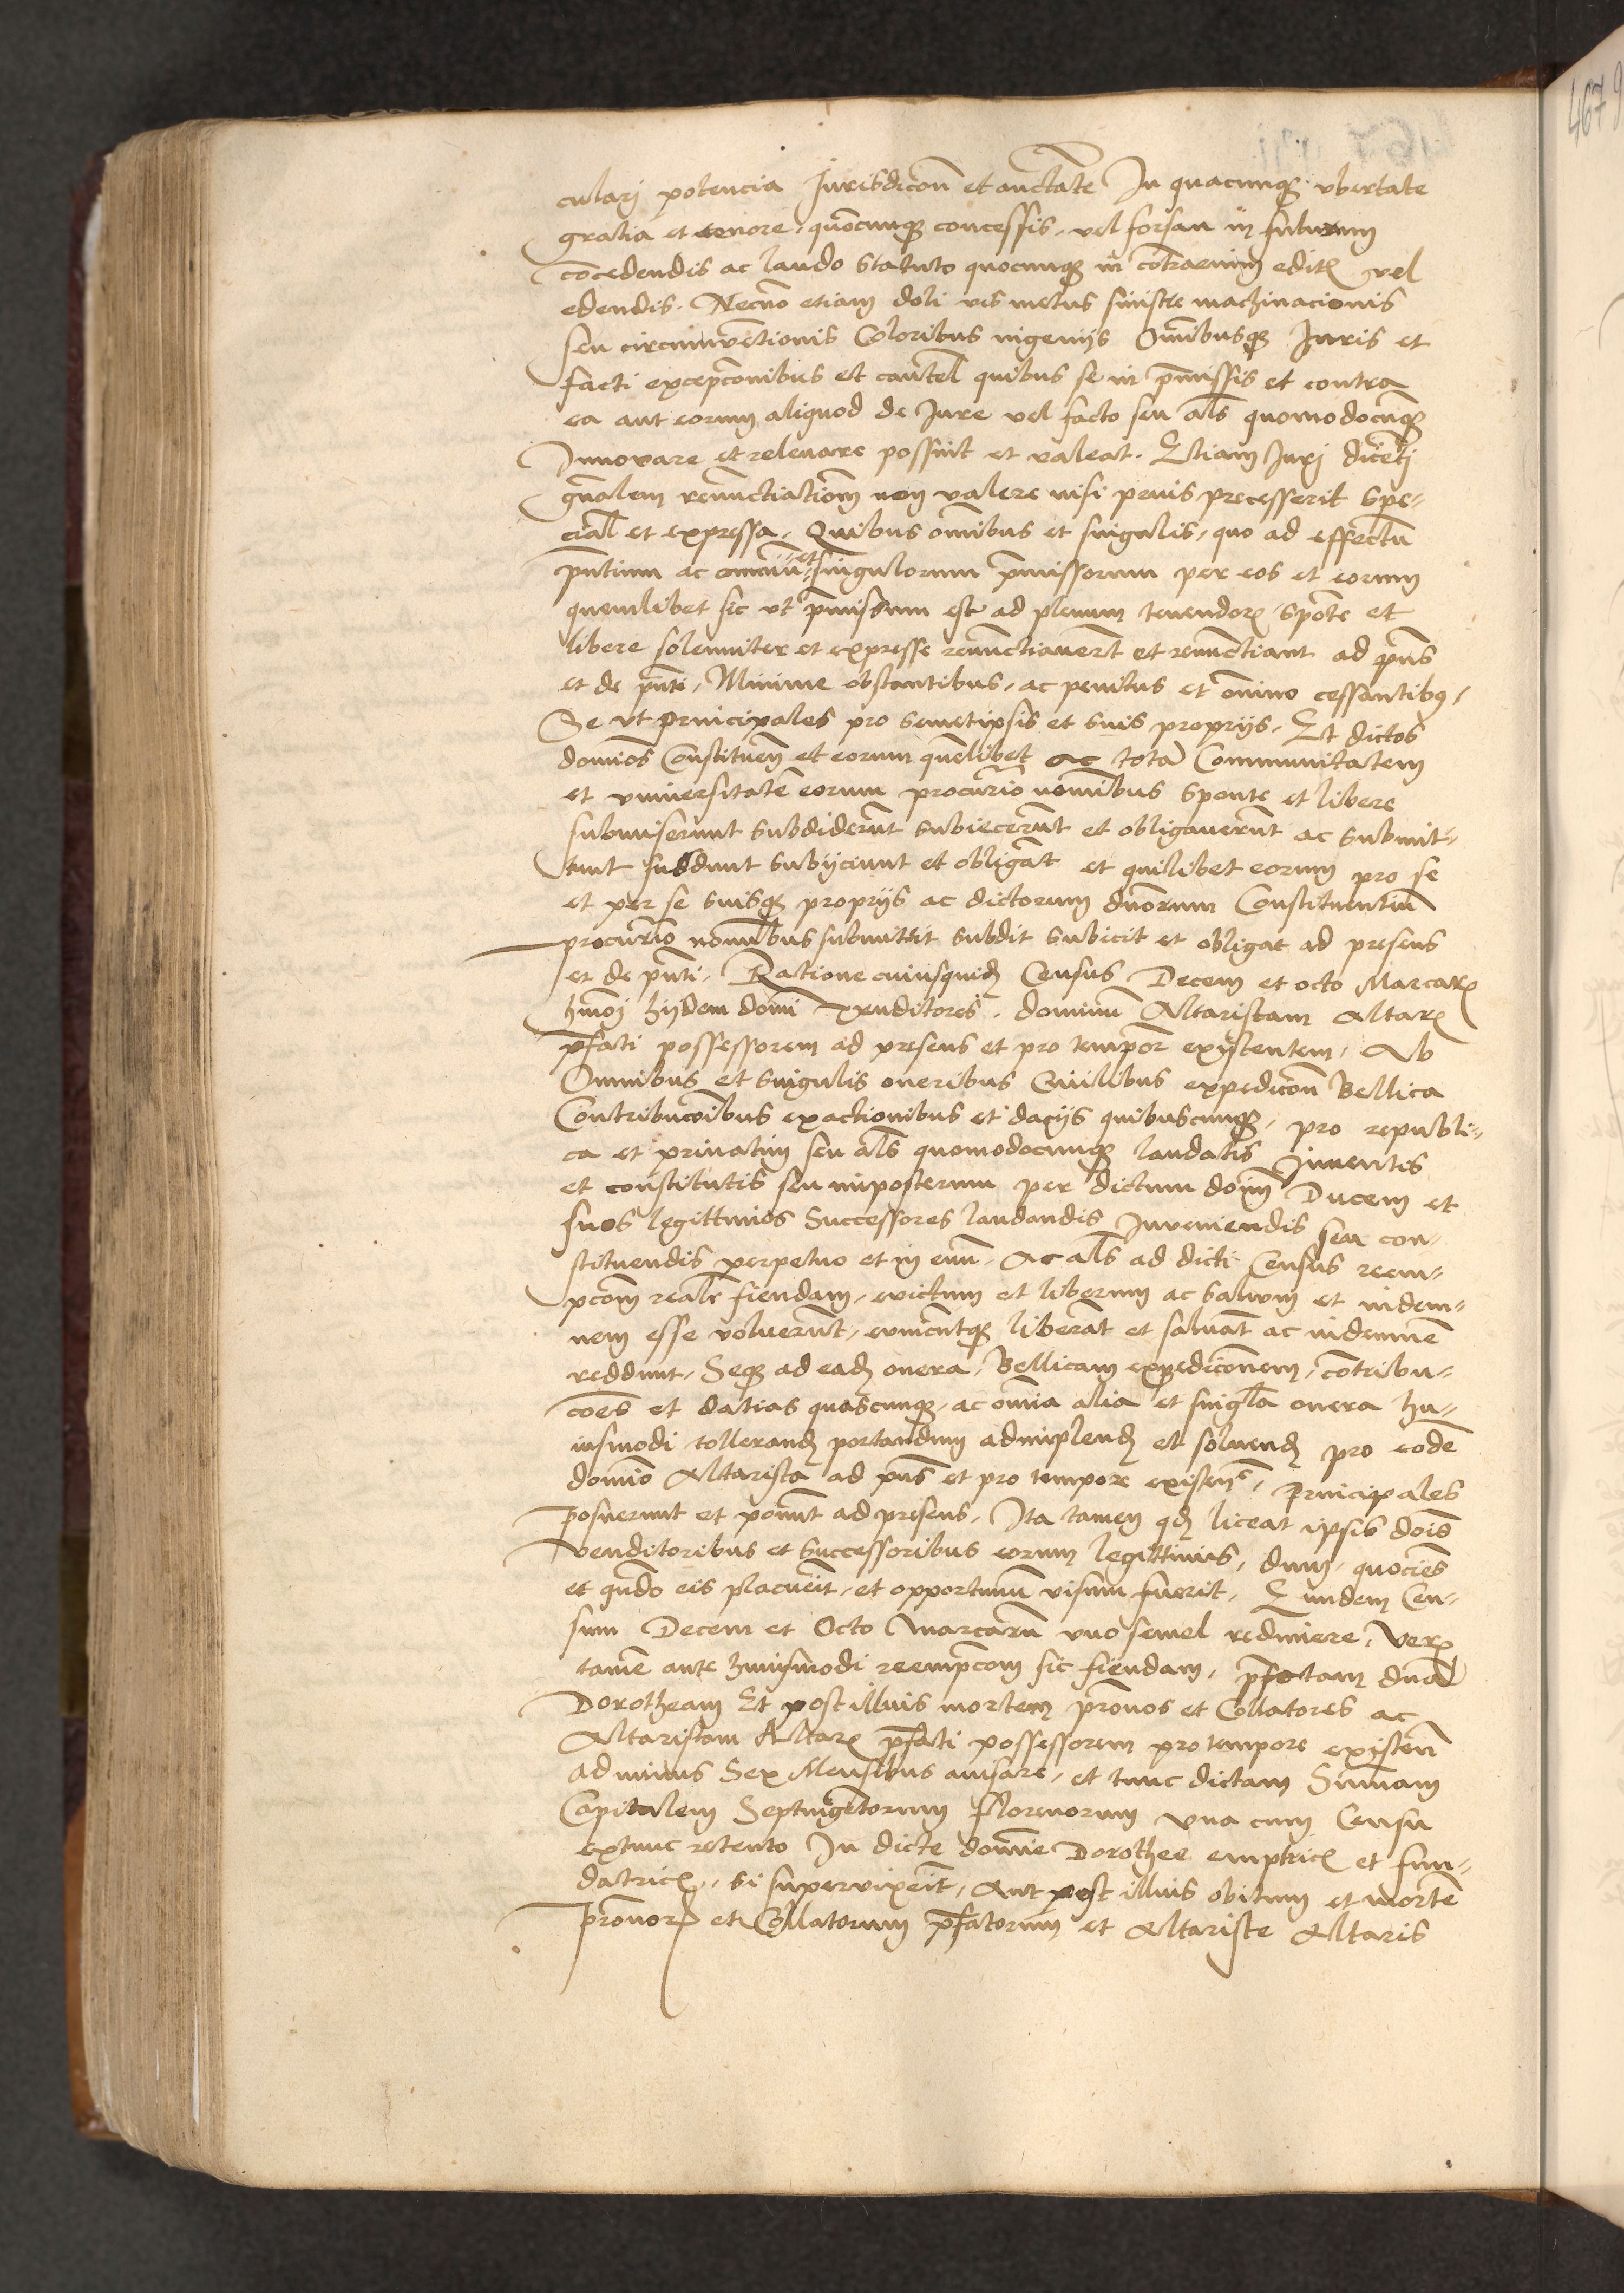 culari potencia Jurisdicon̄ et auctate In quacunq; vbertate
gratia et tenore quocunq; concessis, vel forsan in futurum
concedendis ac laudo Statuto quocunq; in contrarium edit vel
edendis. Necno etiam doli vis metus sinistre machinacionis
seu circumvetionis Coloribus ingenijs Omnibusq; Juris et
facti excepconibus et cautel quibus se in pmissis et contra
ea aut eorum aliquod de Jure vel facto seu als quomodocuq;
Innovare et relevare possint et valeat. Etiam Juri diceti
gnalem renuctiatiom non valere nisi prius precesserit spe-
cial et expressa, Quibus omibus et singulis, quo ad effectu
pntium ac omniu et singulorum pmissorum per eos et eorum
quemlibet sic vt pmissum est ad plenum tenendor sponte et
libere solemniter et expresse renuctiavert et renuctiant ad pns
et de pnti, Minime obstantibus, ac penitus et omino cessantibus,
Se vt principales pro semetipsis et suis proprijs. Et dictos
domios Constituen et eorum quelibet ac tota Communitatem
et vniuersitate eorum procurio nomibus sponte et libere
submiserunt subdiderut subiecerut et obligauerut ac submit-
tunt subdunt subijciunt et obligat et quilibet eorum pro se
et per se suisq; proprijs ac dictorum dnorum Constituentiu
procurio nomibus submittit subdit subicit et obligat ad presens
et de pnti. Ratione cuiusquid Census Decem et octo Marcar
hmoi hijdem domi venditores, dominu Altaristam Altar
pfati possessorem ad presens et pro tempor existentem, Ab
Omnibus et singulis oneribus Ciuilibus expedicon Bellica
Contribucoibus exactionibus et dacijs quibuscunq;, pro republi-
ca et priuatim seu als quomodocunq; laudatis Inuentis
et constitutis seu imposterum per dictum dom Ducem et
suos legittimos Successores laudandis Inveniendis seu con-
stituendis perpetuo et in euu. Ac als ad dicti Census reem-
pcom realr fiendam, evictum et liberum ac saluum et indem-
nem esse voluerut, euincutq; liberat et saluat ac indemne
reddunt. Seq; ad ead onera, Bellicam expedicionem, contribu-
coes et datias quascunq; ac omia alia et singla onera hu-
iusmodi tollerand portandum adimplend et soluend pro eode
domio Altarista ad pns et pro tempore existens, Principales
posuerunt et ponut ad presens, Ita tamen qd liceat ipsis dois
venditoribus et successoribus eorum legittimis, dum, quocies
et qndo eis placueit, et opportunu visum fuerit, Eundem Cen-
sum Decem et Octo Marcaru vno semel redimere, Ver
tame ante huiusmodi reempcom sic fiendam, pfatam dnam
Dorotheam Et post illius mortem pronos et Collatores ac
Altaristam Altar pfati possessorem pro tempore existen
ad minus Sex Mensibus auisare, et tunc dictam Summam
Capitalem Septingetorum florenorum vna cum Censu
extunc retento In dicte domie Dorothee emptric et fun-
datric, si supervixeit, Aut post illius obitum et morte
pronor et Collatorum pfatorum et Altariste Altaris